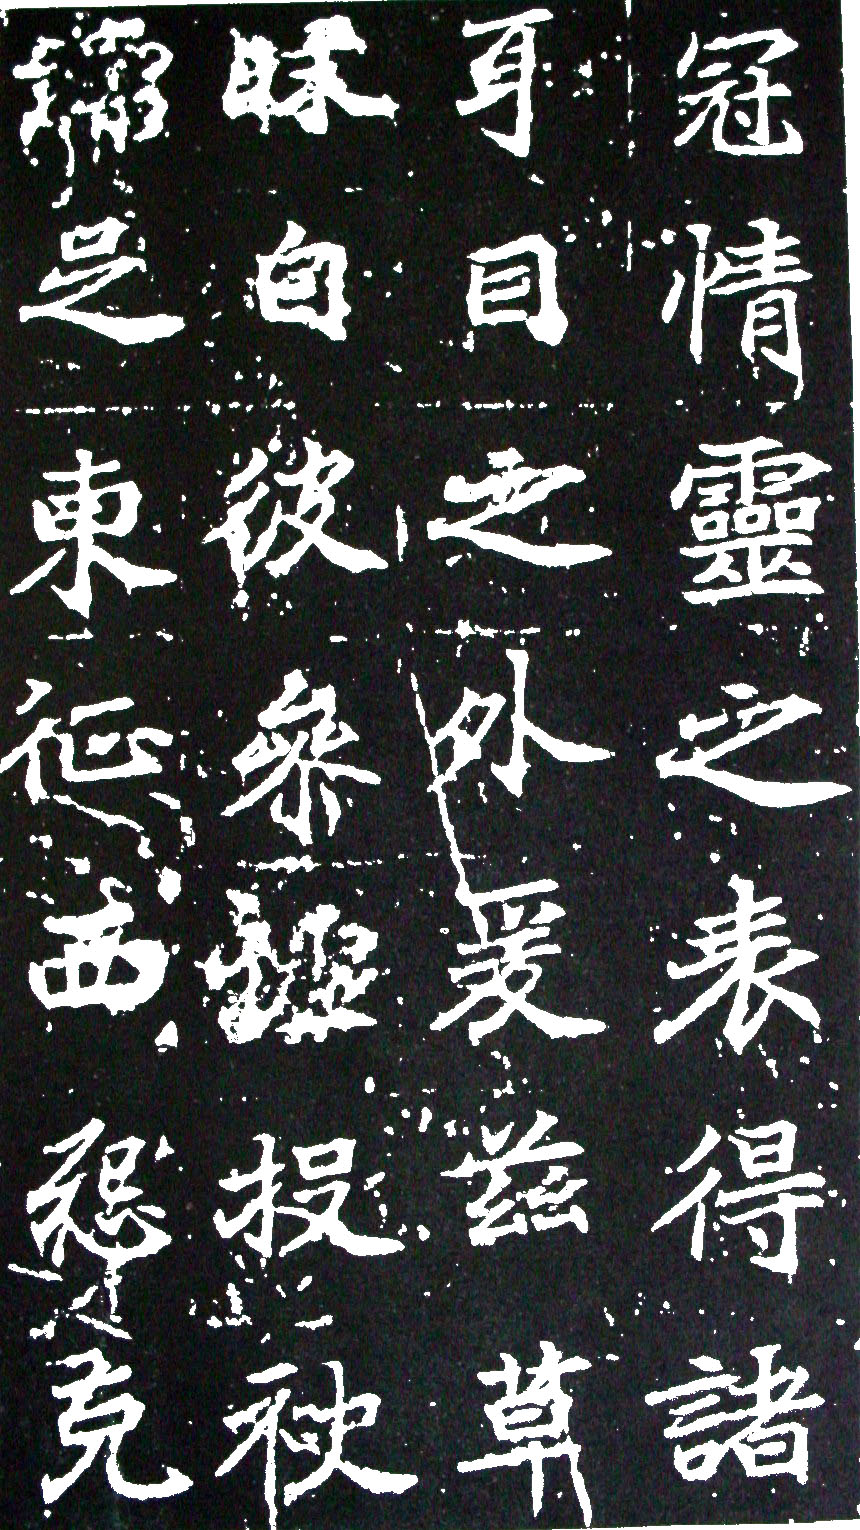 冠情靈之表得諸
耳目之外爰茲草
昧自彼參墟投袂
足東征西怨克